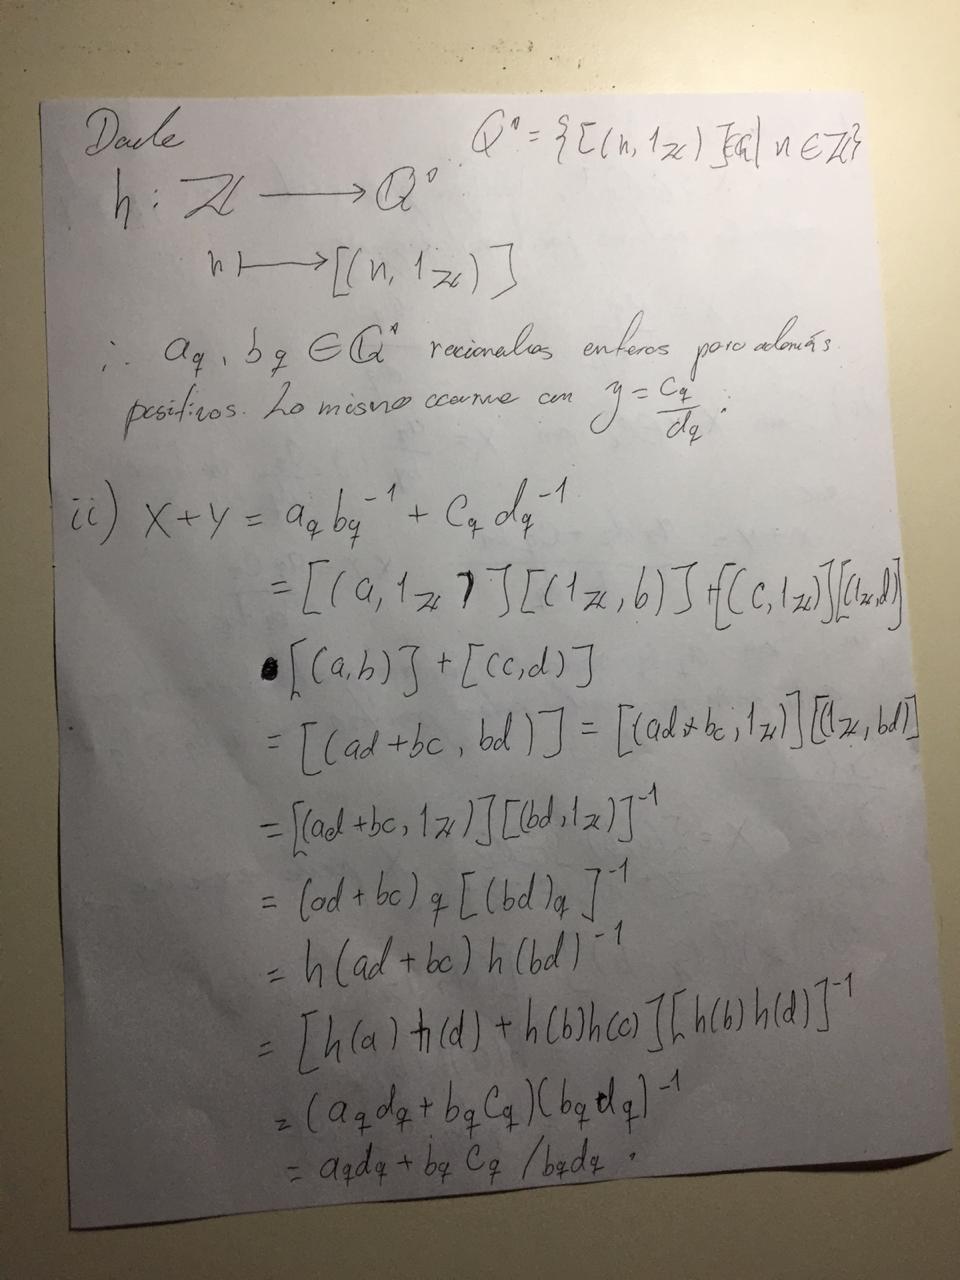 Dado
Q' = {[(n, 1_ℤ)] ∈ ℚ | n ∈ ℤ}
h : ℤ ⟶ ℚ'
n ⟼ [(n, 1_ℤ)]
∴ a_q, b_q ∈ ℚ' enteros pero además
positivos. Lo mismo ocurre con y = c_q/d_q .
ii) X+Y = a_q b_q^{-1} + c_q d_q^{-1}
= [(a, 1_ℤ)][(1_ℤ, b)] + [(c, 1_ℤ)][(1_ℤ, d)]
[(a,b)] + [(c,d)]
= [(ad+bc, bd)] = [(ad+bc, 1_ℤ)][(1_ℤ, bd)]
= [(ad+bc, 1_ℤ)][(bd, 1_ℤ)]^{-1}
= (ad+bc)_q [(bd)_q]^{-1}
= h(ad+bc) h(bd)^{-1}
= [h(a)h(d) + h(b)h(c)][h(b)h(d)]^{-1}
= (a_q d_q + b_q c_q)(b_q d_q)^{-1}
= a_q d_q + b_q c_q / b_q d_q .